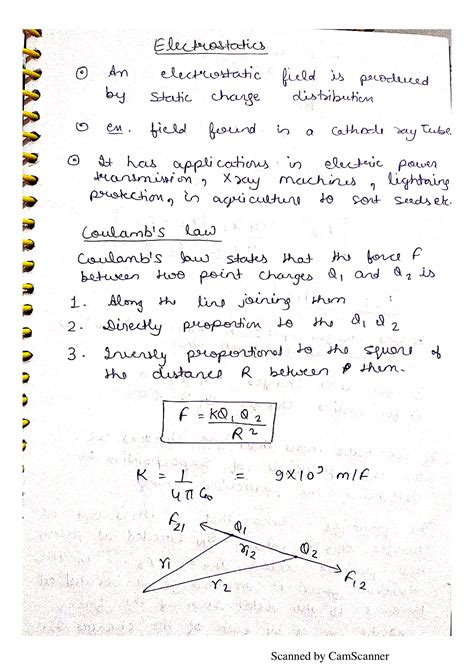 Electrostatics
⊙ An electrostatic field is produced
by static charge distribution
⊙ en. field found in a cathode ray Tube.
⊙ It has applications in electric power
transmission, Xray machines, lightning
protection, in agriculture to sort seeds etc.
Coulamb's law
Coulamb's law states that the force F
between two point charges Q1 and Q2 is
1. Along the line joining them :
2. Directly proportion to the Q1 Q2
3. Inversly proportional to the square of
the distance R between them.
F = KQ1 Q2 / R²
K = 1 / 4π ε0 = 9×10⁹ m/f
F21 Q1
r12 Q2
r1 r2 F12
Scanned by CamScanner